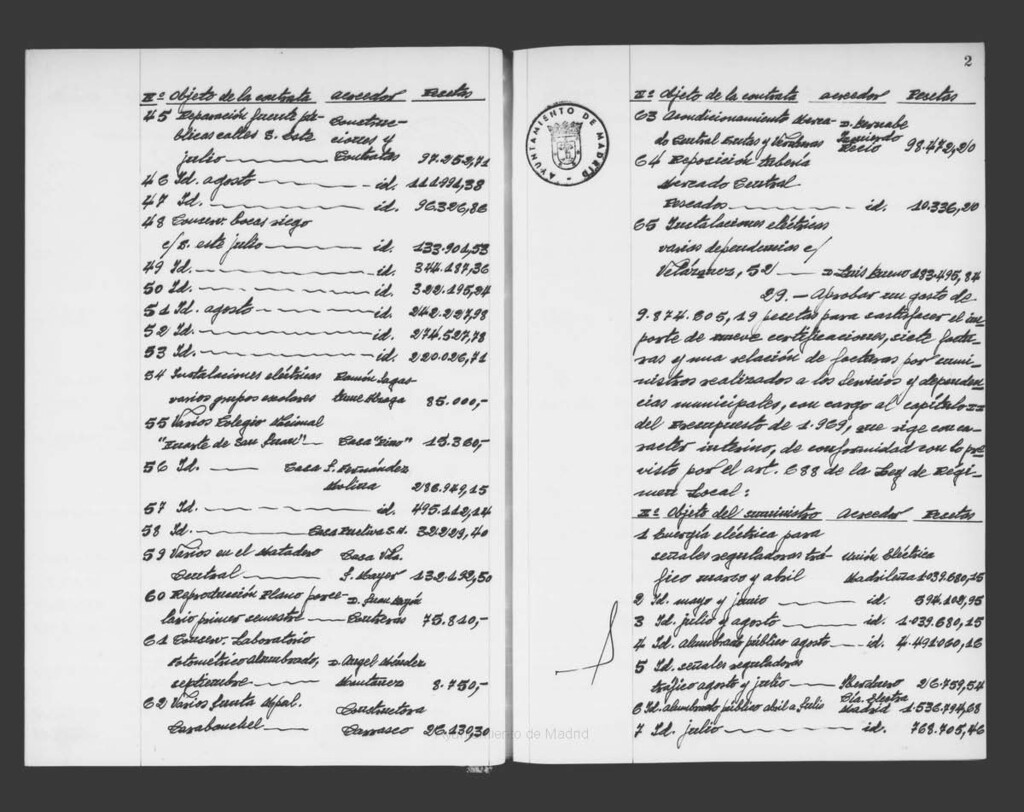 Nº Objeto de la contrata acreedor Pesetas
45 Reparación fuente pú-
blicas calles S. Este Construc-
ciones y
julio Contratas 97.252,71
46 Id. agosto id. 111.991,38
47 Id. id. 96.326,86
48 Conserv. bocas riego
c/ S. este julio id. 133.901,53
49 Id. id. 344.187,36
50 Id. id. 322.195,24
51 Id. agosto id. 242.227,98
52 Id. id. 274.527,78
53 Id. id. 220.026,71
54 Instalaciones eléctricas Ramón
varios grupos escolares 85.000,-
55 Varios Colegio Nacional
"Duarte de San Juan" Casa "Vino" 15.360,-
56 Id. Casa S. Fernández
Molina 286.949,15
57 Id. id. 495.112,14
58 Id. Casa S.A. 32.229,40
59 Varios en el Matadero Casa Vda.
Central S. Mayer 132.192,50
60 Reproducción Plano parce-
lario primer semestre D. Juan
Contreras 75.810,-
61 Conserv. Laboratorio
Fotométrico alumbrado, D. Angel Méndez
septiembre Montanez 8.750,-
62 Varios Junta Mpal. Constructora
Carabanchel Carrasco 26.130,30
2
AYUNTAMIENTO DE MADRID
Nº Objeto de la contrata acreedor Pesetas
63 Acondicionamiento Merca- D. Bernabe
do Central Frutas y Verduras Izquierdo
Recio 98.472,20
64 Reposición tubería
Mercado Central
Pescados id. 10.336,20
65 Instalaciones eléctricas
varias dependencias c/
Velázquez, 52 D. Luis Bueno 183.495,84
29. - Aprobar un gasto de
9.874.805,19 pesetas para satisfacer el im-
porte de nueve certificaciones, siete factu-
ras y una relación de facturas por sumi-
nistros realizados a los Servicios y dependen-
cias municipales, con cargo al capítulo II
del Presupuesto de 1.969, que rige con ca-
racter interino, de conformidad con lo pre-
visto por el art. 688 de la Ley de Régi-
men Local:
Nº Objeto del suministro Acreedor Pesetas
1 Energía eléctrica para
señales reguladoras trá- Unión Eléctrica
fico marzo y abril Madrileña 1.039.680,15
2 Id. mayo y junio id. 594.102,95
3 Id. julio y agosto id. 1.039.680,15
4 Id. alumbrado público agosto id. 4.491.060,16
5 Id. señales reguladoras
tráfico agosto y julio Iberduero 26.759,54
6 Id. alumbrado público abril a Julio Cía. Electra
Madrid 1.536.794,68
7 Id. julio id. 768.705,46
Ayuntamiento de Madrid